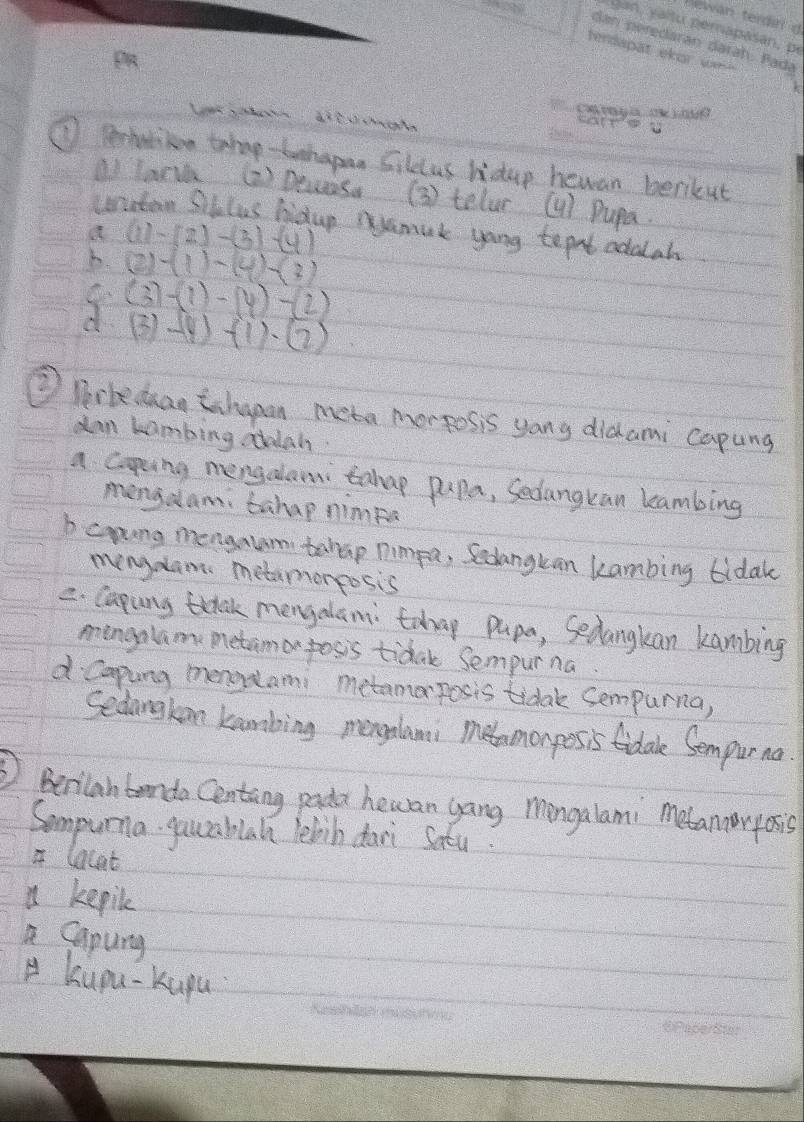 dan peredaran darah. Pada
PR
① Perhatikan tahap-tahapan Siklus hidup hewan berikut
(1) larva (2) Dewasa (3) telur (4) pupa.
urutan Siklus hidup nyamuk yang tepat adalah
a (1)-(2)-(3)-(4)
b. (2)-(1)-(4)-(3)
c. (3)-(1)-(4)-(2)
d. (3)-(4)-(1)-(2)
② Perbedaan tahapan meta morposis yang dialami capung
dan kambing adalah.
a. capung mengalami tahap pupa, sedangkan kambing
mengalami tahap nimfa
b capung mengalami tahap nimfa, sedangkan kambing tidak
mengalami metamorfosis
c. Capung tidak mengalami tahap pupa, sedangkan kambing
mengalami metamorfosis tidak sempurna.
d. Capung mengalami metamorposis tidak sempurna,
sedangkan kambing mengalami metamorposis tidak sempurna.
③ Berilah tanda Centang pada hewan yang mengalami metamorfosis
Sempurna. jawablah lebih dari satu.
lalat
kepik
capung
kupu-kupu
PaperStar